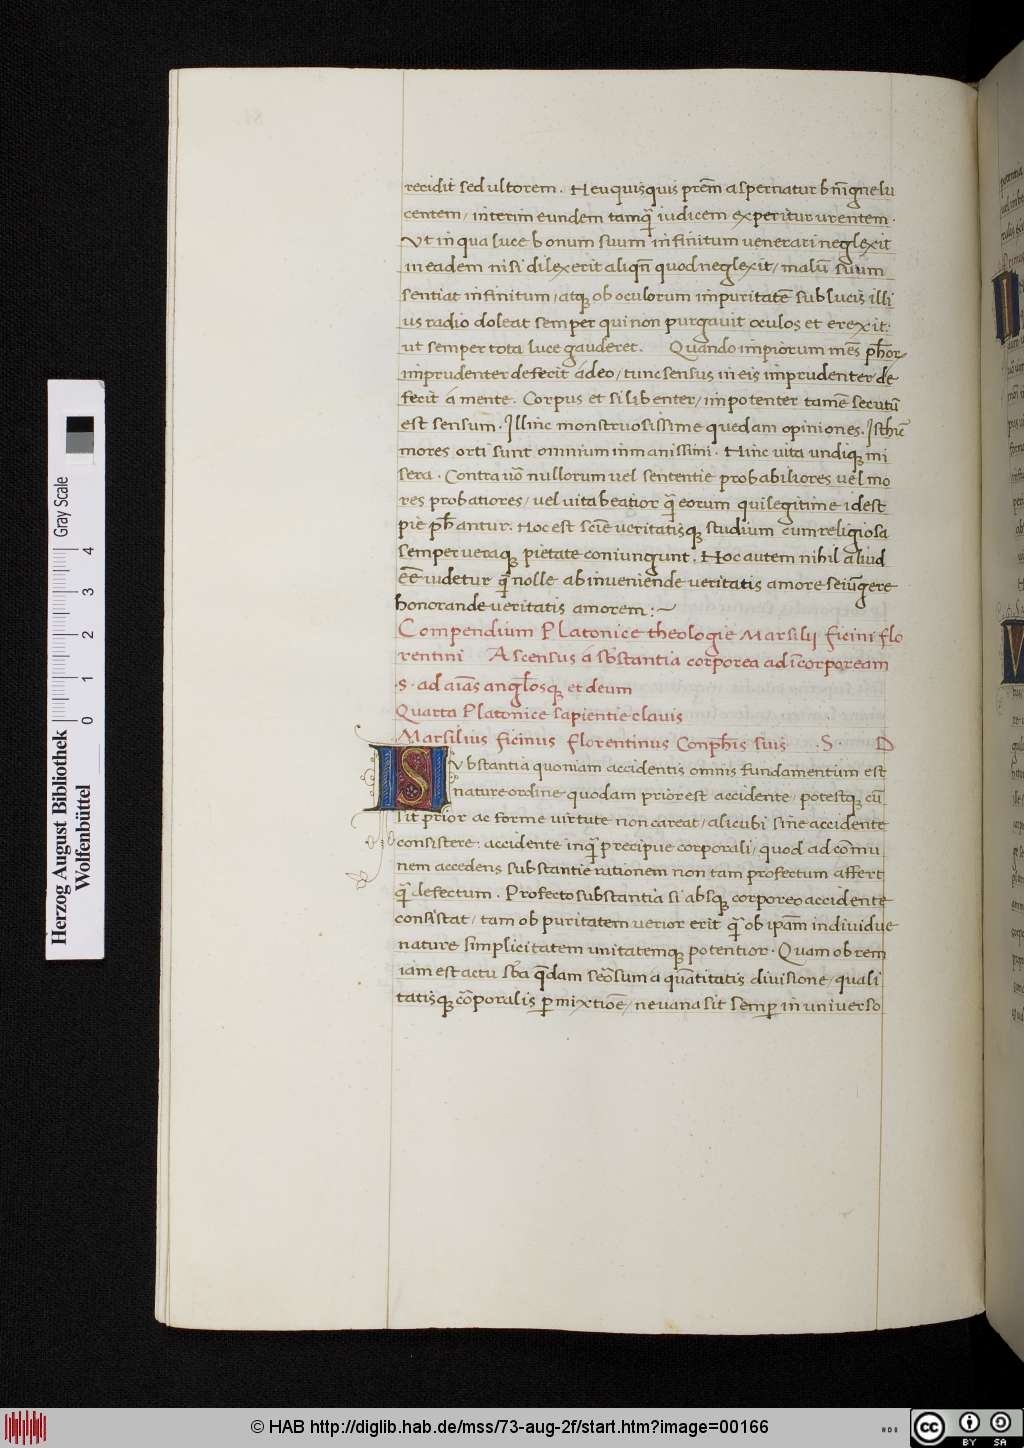 recidit sed ultorem. Neuquisquis prēm aspernatur bn̄ignelu
centem/ interim eundem tamq̄ iudicem experitur urentem.
Vt in qua luce bonum suum infinitum uenerari neglexit
in eadem nisi dilexerit aliqn̄ quod neglexit/ malū suum
sentiat infinitum/ atq; ob oculorum impuritatē sub lucis illi
us radio doleat semper qui non purgauit oculos et erexit:
ut semper tota luce gauderet. Quando impiorum mēs ph̄or
imprudenter defecit á deo/ tunc sensus in eis imprudenter de
fecit á mente. Corpus et si libenter/ impotenter tamē secutū
est sensum. Illinc monstruosissime quedam opiniones. Isthīc
mores orti sunt omnium inmanissimi. Hinc uita undiq; mi
sera. Contra uō nullorum uel sententie probabiliores uel mo
res probatiores/ uel uita beatior q̄ eorum qui legitime idest
pie ph̄antur. Hoc est sciē ueritatisq; studium cum religiosa
semper ueraq; pietate coniungunt. Hoc autem nihil aliud
eē̄ uidetur q̄ nolle ab inueniende ueritatis amore seiūgere
honorande ueritatis amorem:~
Compendium Platonice theologie Marsilij ficini flo
rentini Ascensus á sb̄stantia corporea ad īcorpoream
.s. ad aīas angl̄osq; et deum
Quarta Platonice sapientie clavis
Marsilius ficinus florentinus Conph̄is suis .S. D
SVbstantia quoniam accidentis omnis fundamentum est
nature ordine quodam prior est accidente/ potestq; cū
sit prior ac forme uirtute non careat/ alicubi sine accidente
consistere: accidente inq̄ precipue corporali/ quod ad cōmu
nem accedens substantie rationem non tam profectum affert
q̄ defectum. Profecto substantia si absq; corporeo accidente
consistat/ tam ob puritatem uerior erit q̄ ob ipam̄ individue
nature simplicitatem unitatemq; potentior. Quam ob rem
iam est actu sb̄a q̄dam seōlsum a quātitatis diuisione/ quali
tatisq; cōrporalis ꝑmixtiōe/ ne uana sit semꝑ in universo
Herzog August Bibliothek
Wolfenbüttel
0 1 2 3 4
Gray Scale
© HAB http://diglib.hab.de/mss/73-aug-2f/start.htm?image=00166
cc BY SA